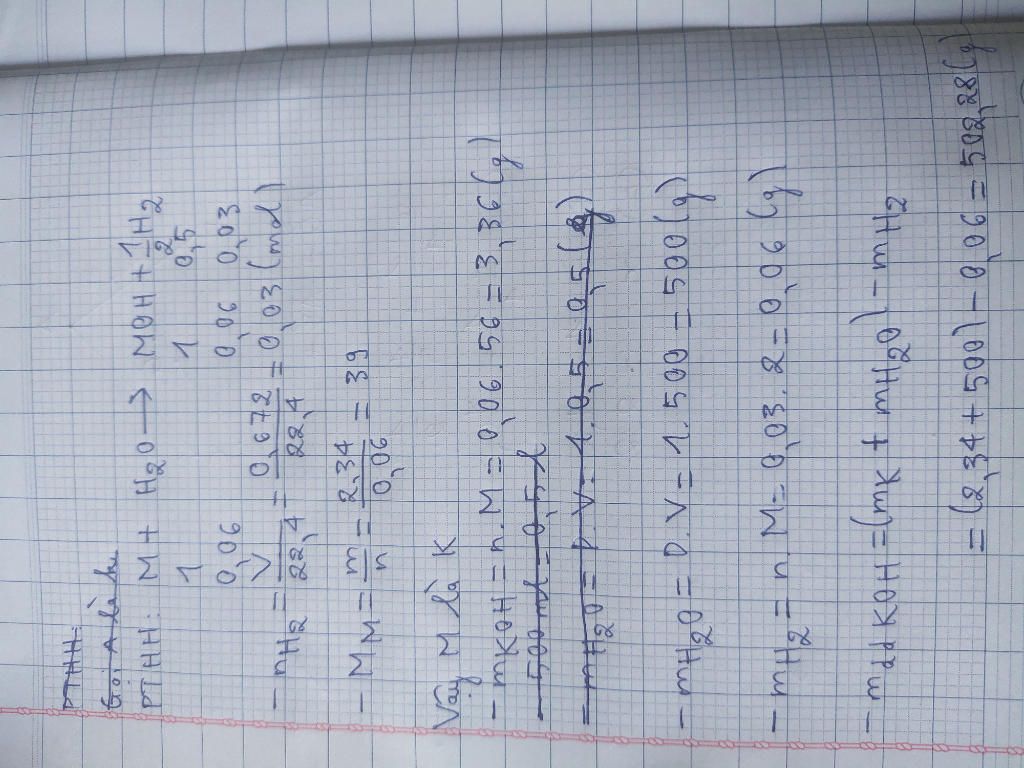 PTHH:
Gọi A là kl
PTHH: M + H₂O ⟶ MOH + 1/2 H₂
1 1 0,5
0,06 0,06 0,03
- nH₂ = V/22,4 = 0,672/22,4 = 0,03 (mol)
- MM = m/n = 2,34/0,06 = 39
Vậy M là K
- mKOH = n.M = 0,06.56 = 3,36 (g)
- 500ml = 0,5l
- mH₂O = D.V = 1.0,5 = 0,5 (g)
- mH₂O = D.V = 1.500 = 500 (g)
- mH₂ = n.M = 0,03.2 = 0,06 (g)
- mdd KOH = (mK + mH₂O) - mH₂
= (2,34 + 500) - 0,06 = 502,28 (g)